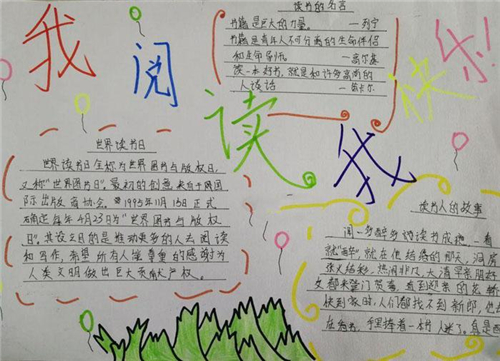 我阅读 我快乐!
读书的名言
书籍是巨大的力量。 —列宁
书籍是青年人不可分离的生命伴侣
和导师。
读一本好书,就是和许多高尚的
人谈话
世界读书日
世界读书日全称为世界图书与版权日,
又称“世界图书日”。最初的创意来自于两国
际出版商协会。1995年11月15日正式
确定每年4月23日为“世界图书与版权
日”。其设立目的是推动更多的人去阅读
和写作,希望所有人尊重的感谢为
人类文明做出巨大贡献产权。
读书人的故事
闻一多醉
读书成瘾,一看
就“醉”,就在他结婚的那天,洞房
张灯结彩,热闹非凡,大清早亲朋好
友都来登门贺喜,直到迎亲的花轿
快到家时,人们都找不到新郎